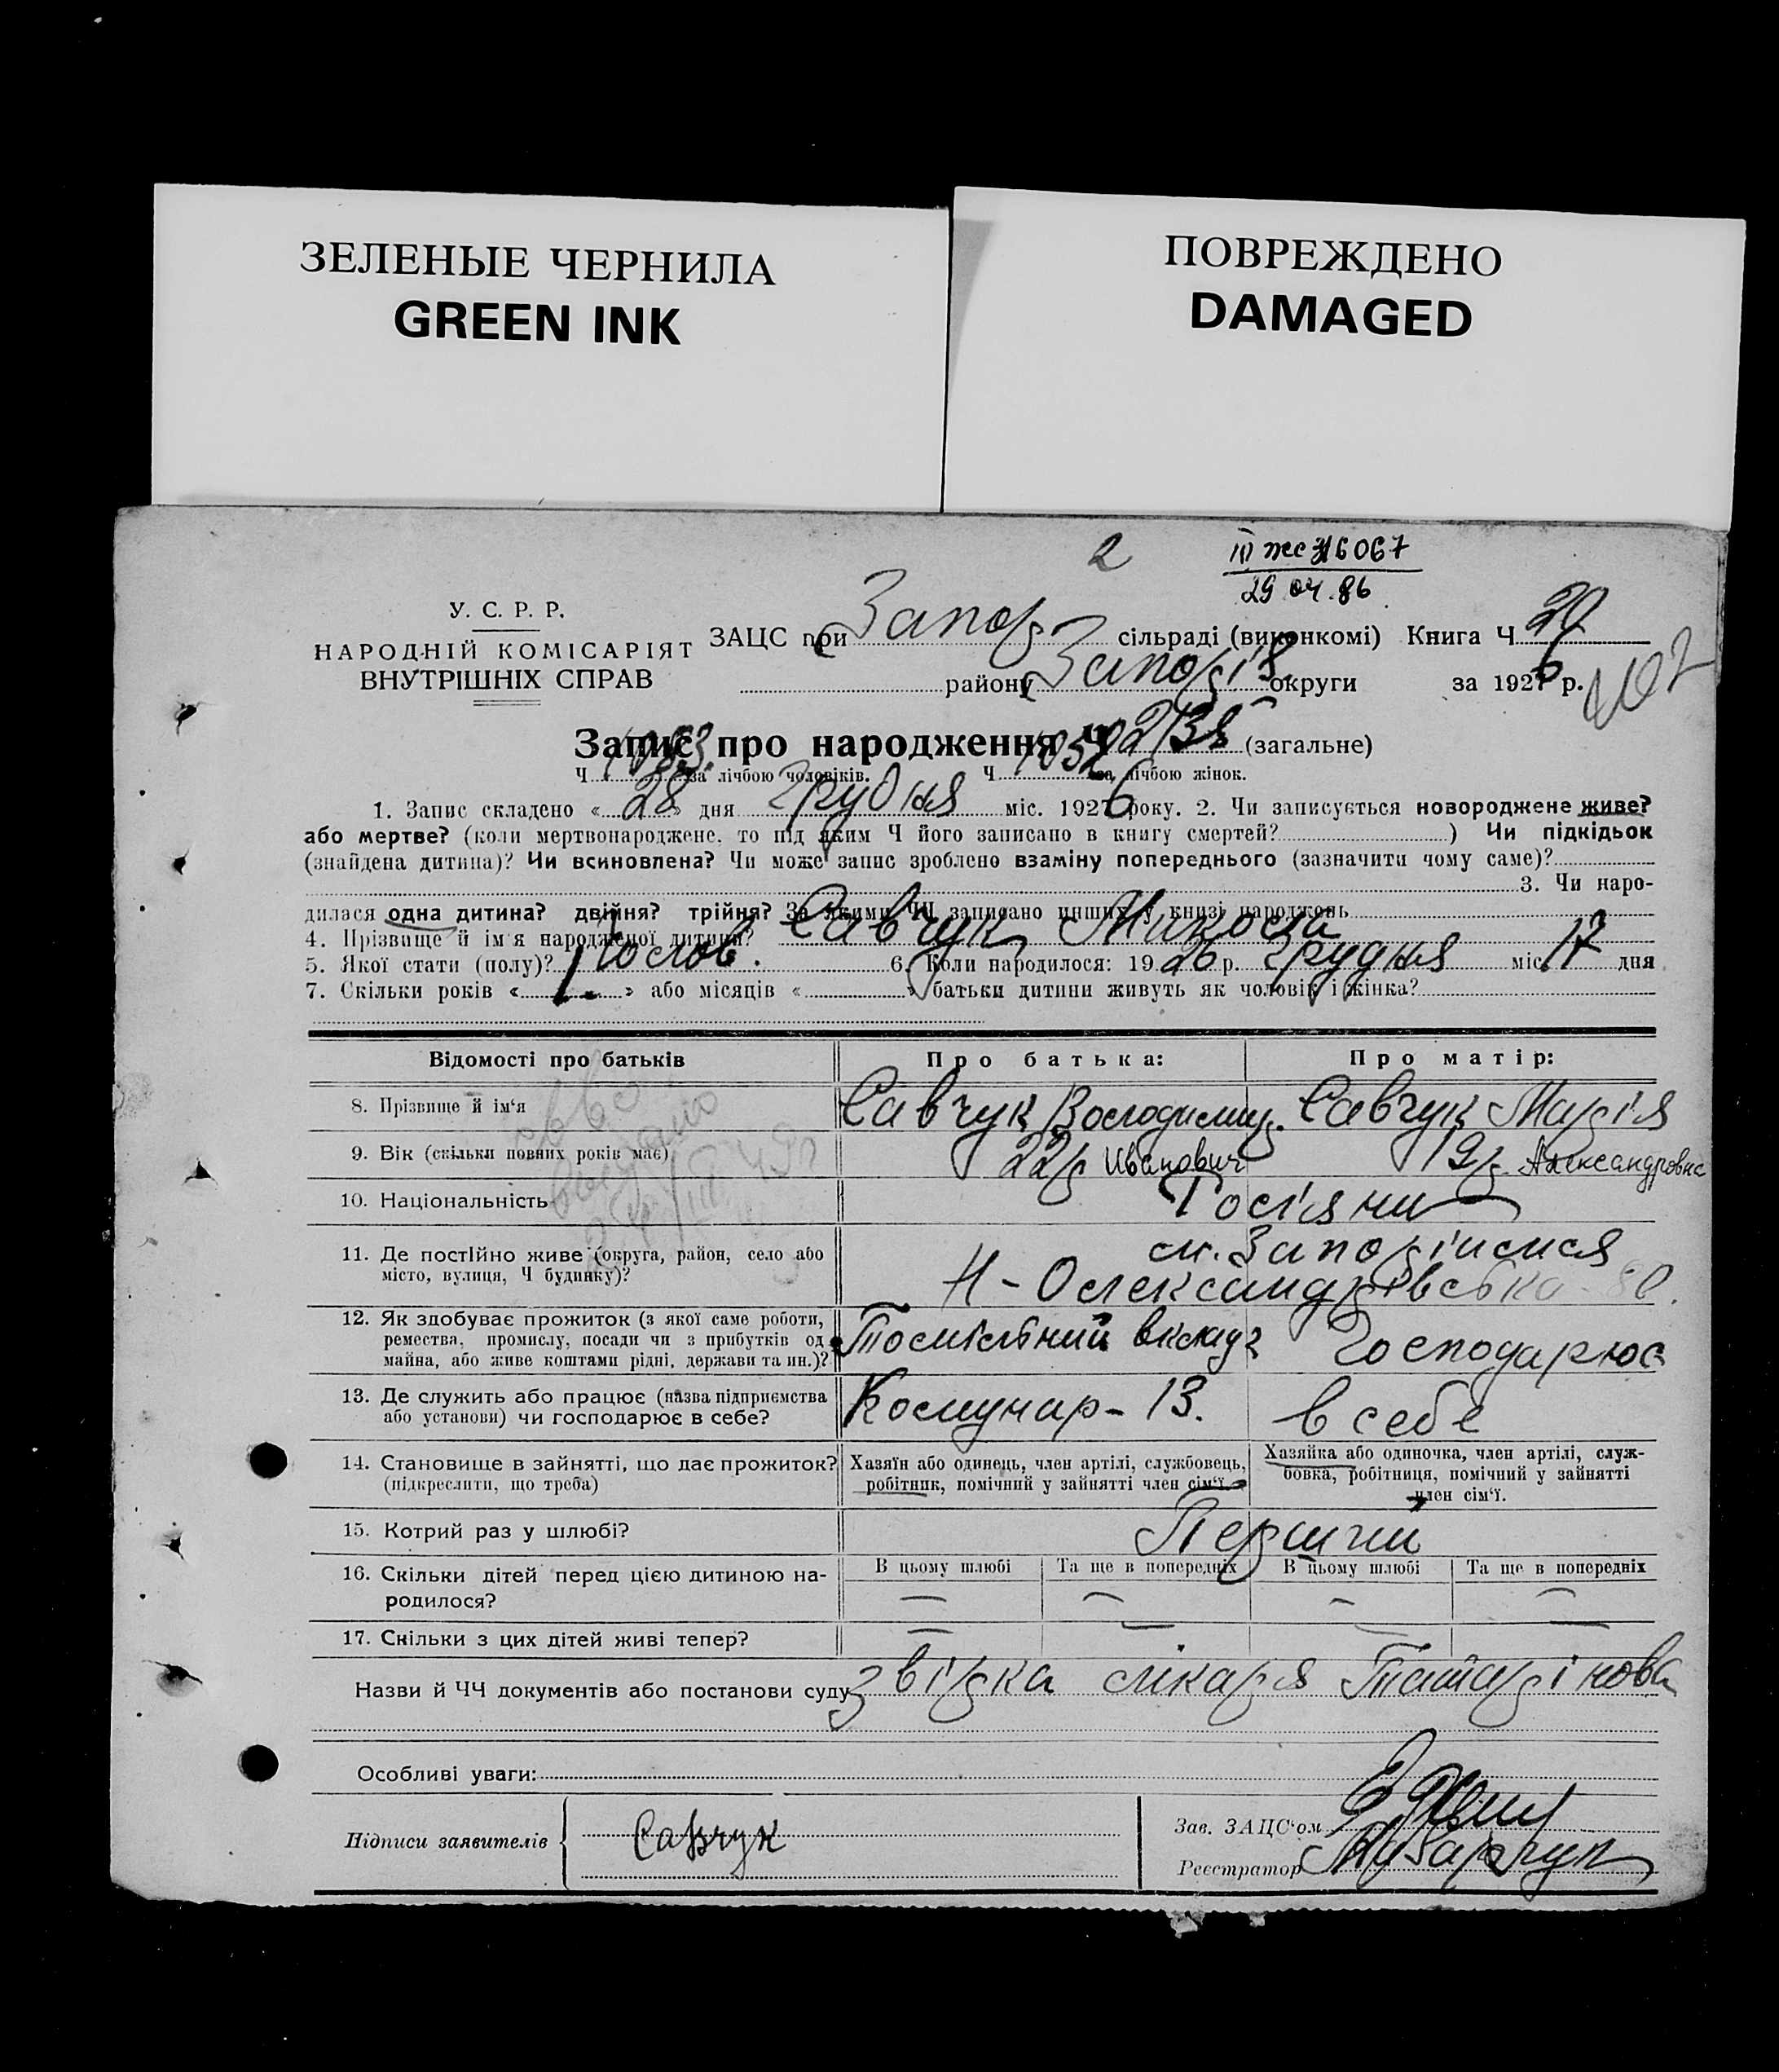 ЗЕЛЕНЫЕ ЧЕРНИЛА
GREEN INK
ПОВРЕЖДЕНО
DAMAGED
2
29.04.86
У. С. Р. Р.
НАРОДНІЙ КОМІСАРІЯТ
ВНУТРІШНІХ СПРАВ
ЗАЦС при Запор сільраді (виконкомі) Книга Ч 20
району Запоріз округи за 1926 р.
Запис про народження Ч 2135 (загальне)
Ч 1083 за лічбою чоловіків. Ч 1052 за лічбою жінок.
1. Запис складено « 28 » дня грудня міс. 1926 року. 2. Чи записується новороджене живе?
або мертве? (коли мертвонароджене, то під яким Ч його записано в книгу смертей? ) Чи підкідьок
(знайдена дитина)? Чи всиновлена? Чи може запис зроблено взаміну попереднього (зазначити чому саме)?
3. Чи наро-
дилася одна дитина? двійня? трійня? За якими ЧЧ записано инших у книзі народжень
4. Прізвище й ім'я народженої дитини? Савчук Микола
5. Якої стати (полу)? Чолов. 6. Коли народилося: 1926 р. грудня міс. 17 дня
7. Скільки років « 1. » або місяців « » батьки дитини живуть як чоловік і жінка?
Відомості про батьків
Про батька:
Про матір:
8. Прізвище й ім'я Савчук Володимир. Савчук Марія
9. Вік (скільки повних років має) 22 р Иванович 19 р. Александровна
10. Національність Росіяни
11. Де постійно живе (округа, район, село або
місто, вулиця, Ч будинку)?
м. Запоріжжя
Н-Олександрівська 80.
12. Як здобуває прожиток (з якої саме роботи,
ремества, промислу, посади чи з прибутків од
майна, або живе коштами рідні, держави та ин.)?
Господарює
13. Де служить або працює (назва підприємства
або установи) чи господарює в себе?
Комунар - 13.
в себе
14. Становище в зайнятті, що дає прожиток?
(підкреслити, що треба)
Хазяїн або одинець, член артілі, службовець,
робітник, помічний у зайнятті член сім'ї.
Хазяйка або одиночка, член артілі, служ-
бовка, робітниця, помічний у зайнятті
член сім'ї.
15. Котрий раз у шлюбі? Перший
16. Скільки дітей перед цією дитиною на-
родилося?
В цьому шлюбі
Та ще в попередніх
В цьому шлюбі
Та ще в попередніх
17. Скільки з цих дітей живі тепер?
Назви й ЧЧ документів або постанови суду звірка лікаря Татарінова
Особливі уваги:
Підписи заявителів Савчук
Зав. ЗАЦС'ом
Реєстратор